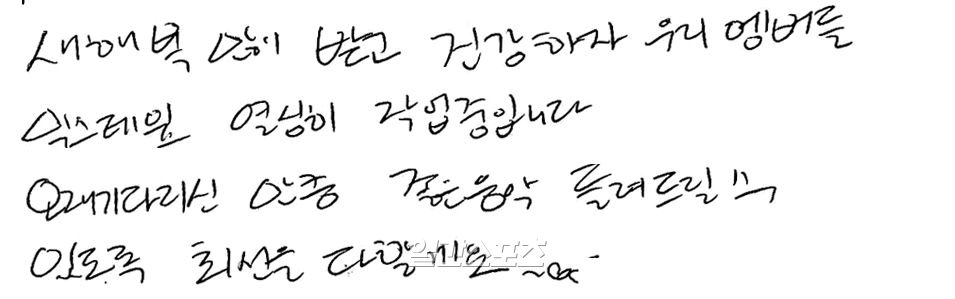 새해복 많이 받고 건강하자 우리 멤버들
믹스테잎 열심히 작업중입니다
오래기다리신 만큼 좋은음악 들려드릴 수
있도록 최선을 다할게요
일간스포츠